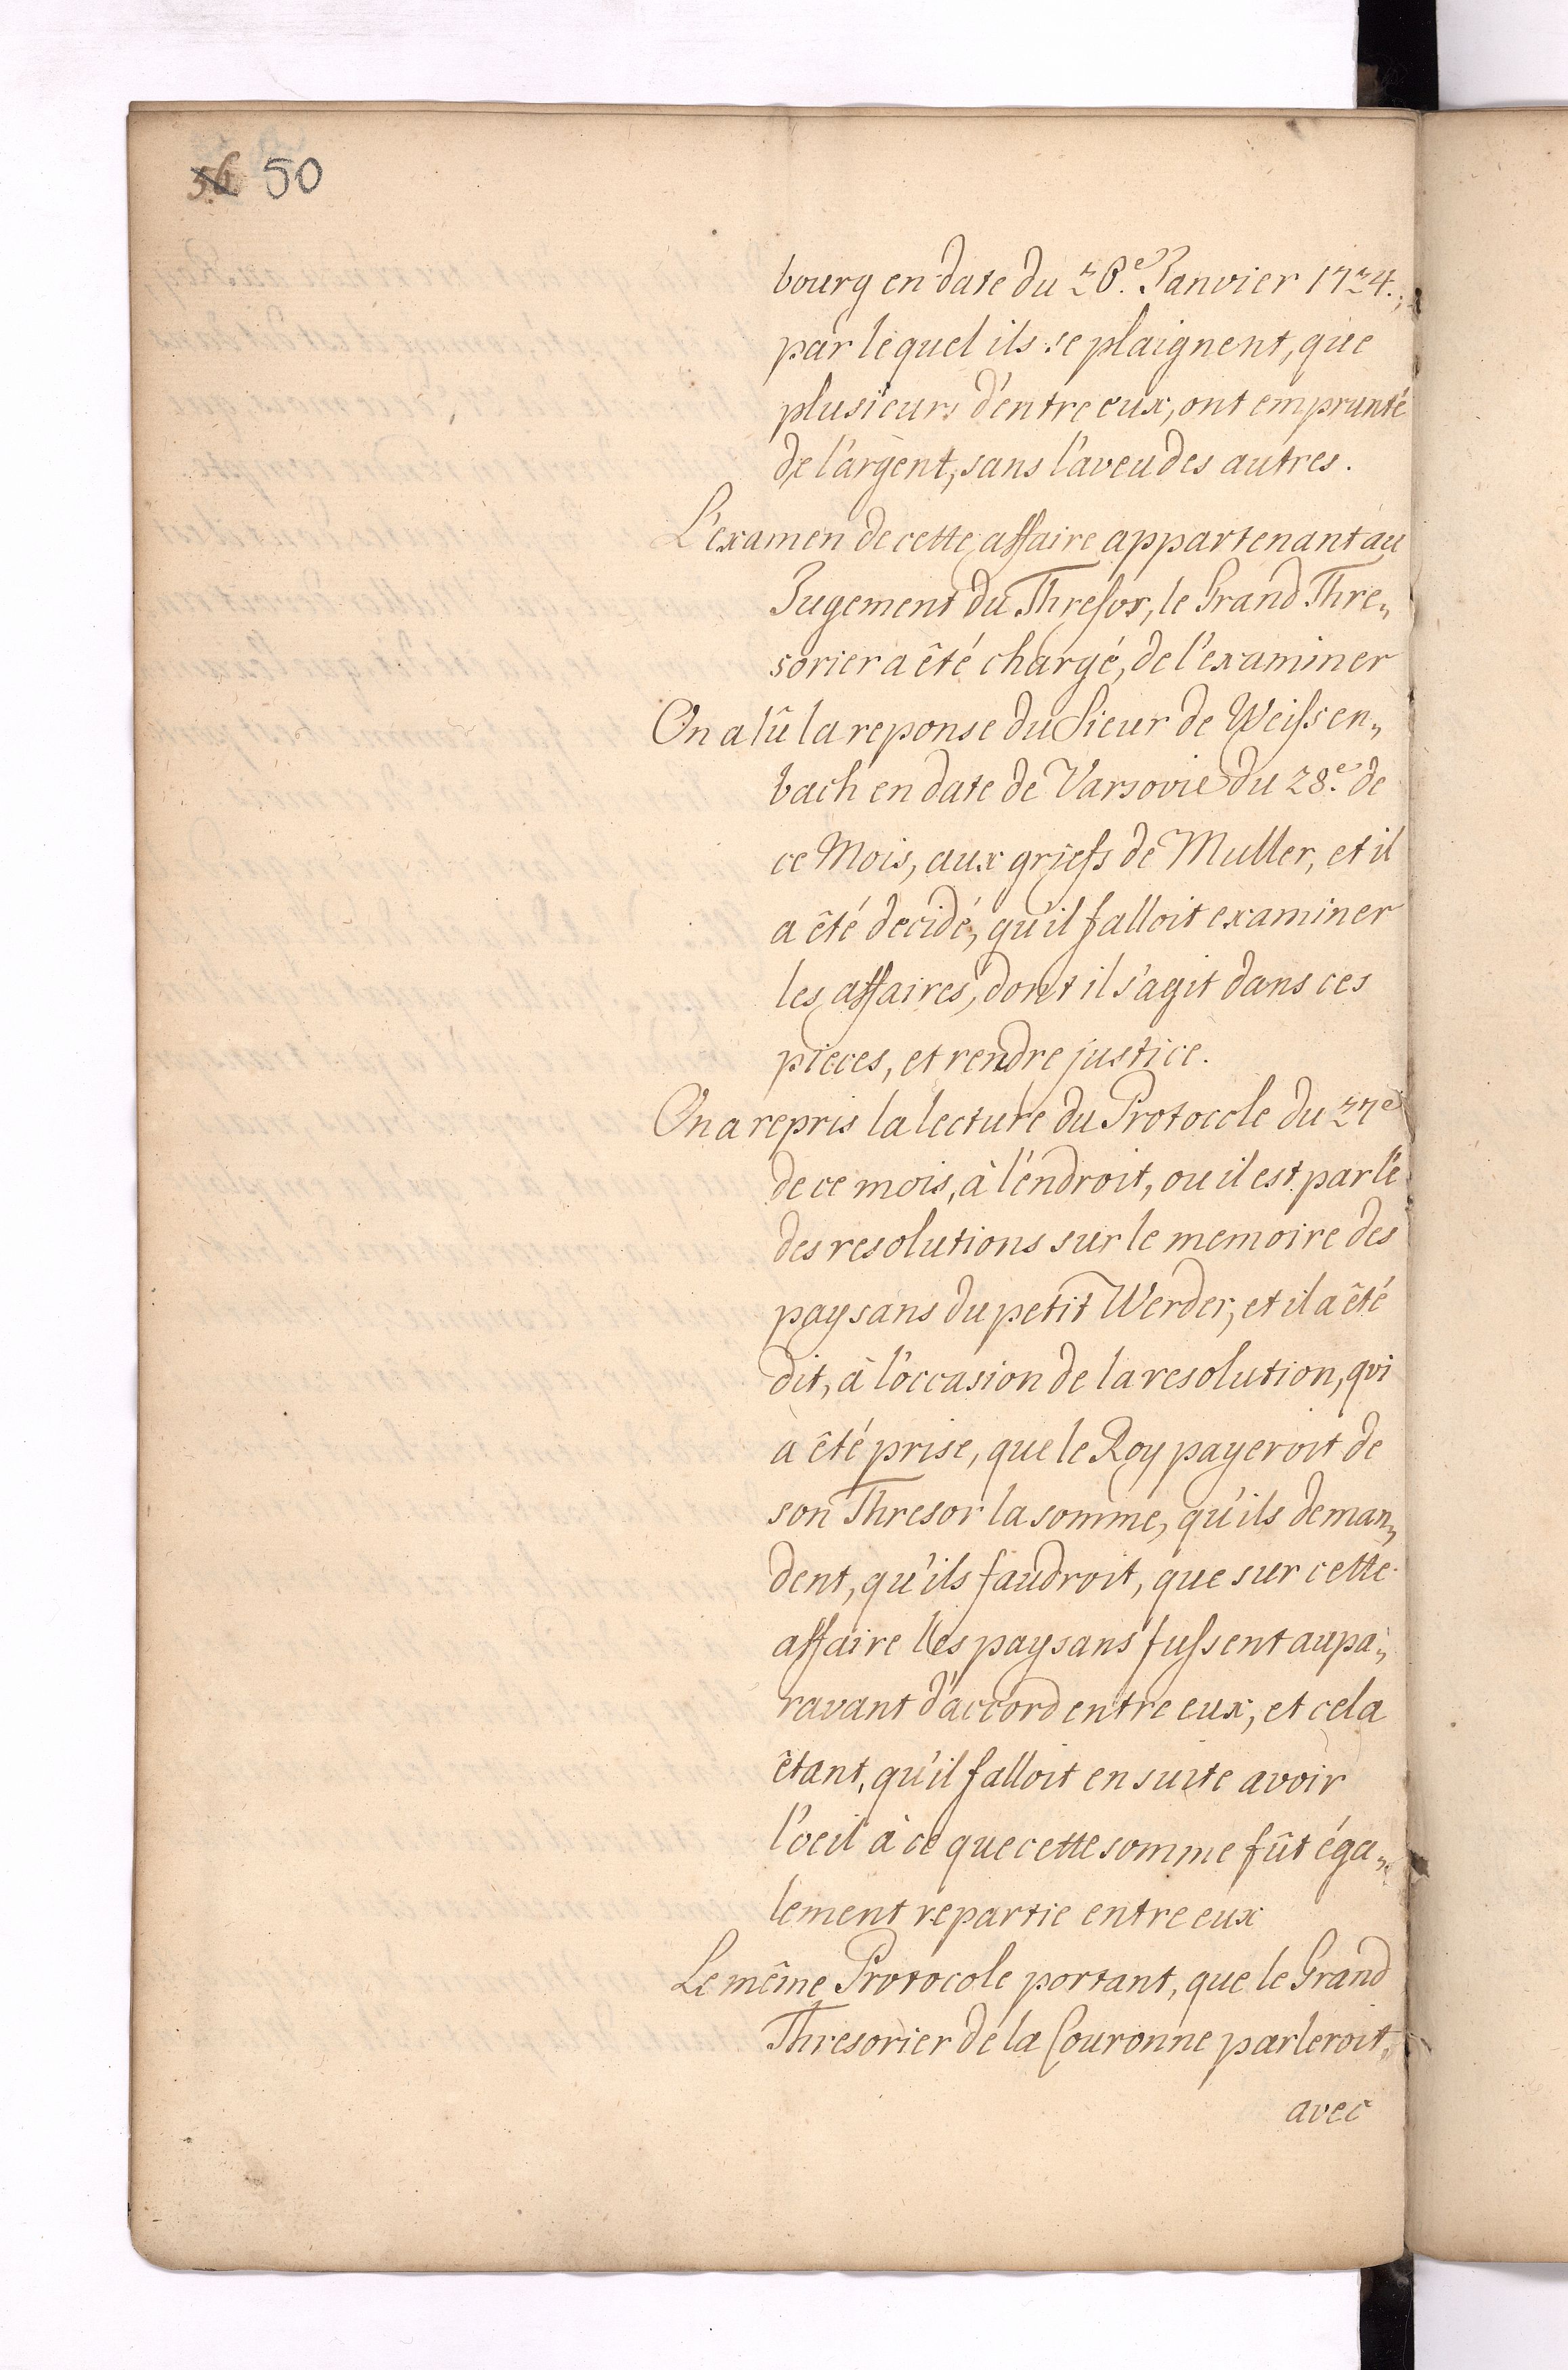 36 50
bourg en date du 28.e Janvier 1724.;
par lequel ils se plaignent, que
plusieurs d'entre eux, ont emprunté
de l'argent, sans l'aveu des autres.
L'examen de cette affaire appartenant au
Jugement du Thresor, le Grand Thre„
sorier a êté chargé, de l'examiner
On a lû la reponse du Sieur de Weissen„
bach en date de Varsovie du 28.e de
ce Mois, aux griefs de Muller, et il
a êté decidé, qu'il falloit examiner
les affaires, dont il s'agit dans ces
pieces, et rendre justice.
On a repris la lecture du Protocole du 27e
de ce mois, à l'endroit, ou il est parlé
des resolutions sur le memoire des
paysans du petit Werder, et il a êté
dit, à l'occasion de la resolution, qvi
a êté prise, que le Roy payeroit de
son Thresor la somme, qu'ils deman„
dent, qu'ils faudroit, que sur cette
affaire les paysans fussent aupa„
ravant d'accord entre eux, et cela
êtant, qu'il falloit en suite avoir
l'oeil à ce que cette somme fût éga„
lement repartie entre eux
Le même Protocole portant, que le Grand
Thresorier de la Couronne parleroit„
avec